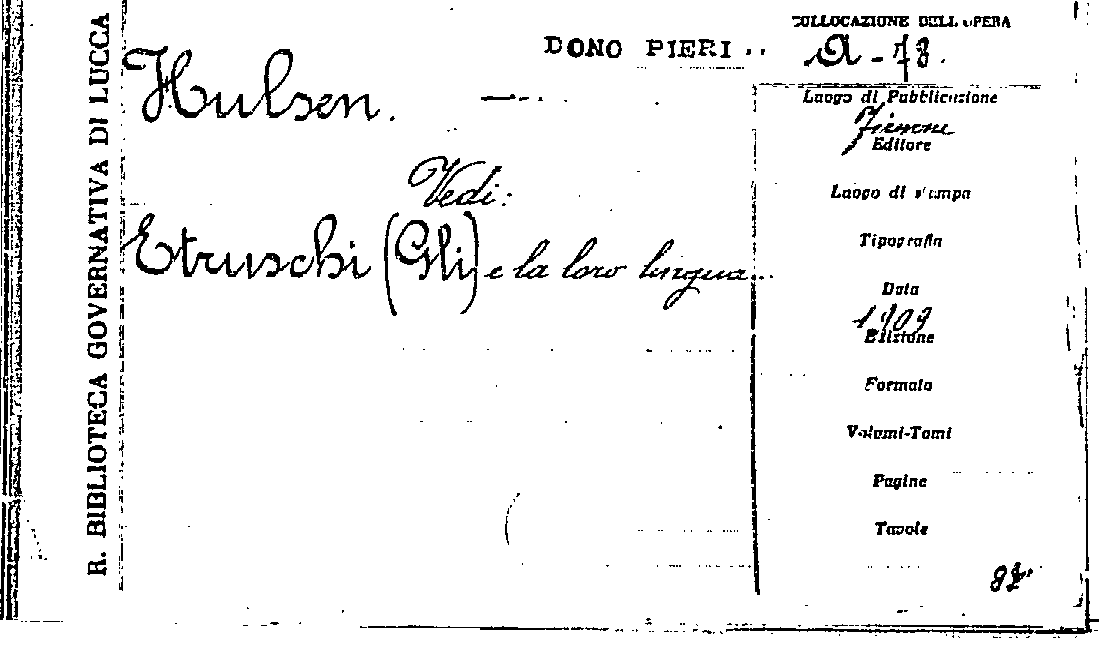 R. BIBLIOTECA GOVERNATIVA DI LUCCA
COLLOCAZIONE DELL'OPERA
DONO PIERI
A-78.
Hulsen.
Luogo di Pubblicazione
Firenze
Editore
Vedi:
Luogo di stampa
Etruschi (Gli) e la loro lingua...
Tipografia
Data
1909
Edizione
Formato
Volumi-Tomi
Pagine
Tavole